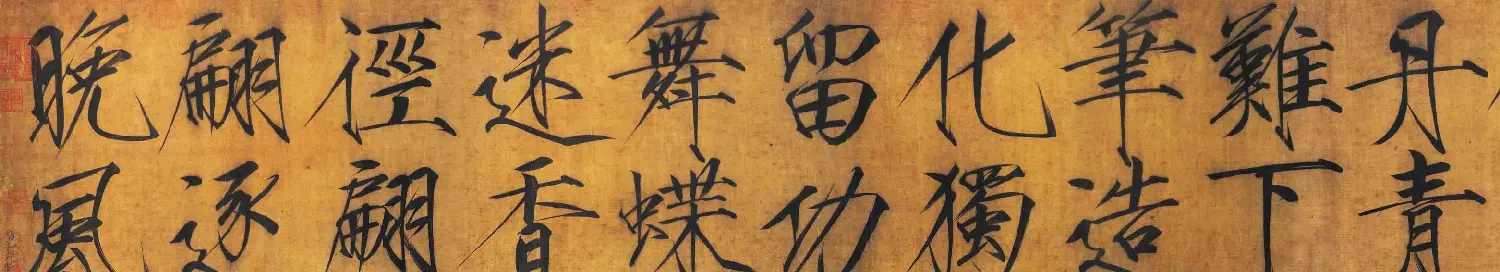 丹青
難下
筆造
化獨
留功
舞蝶
迷香
徑翩
翩逐
晚風